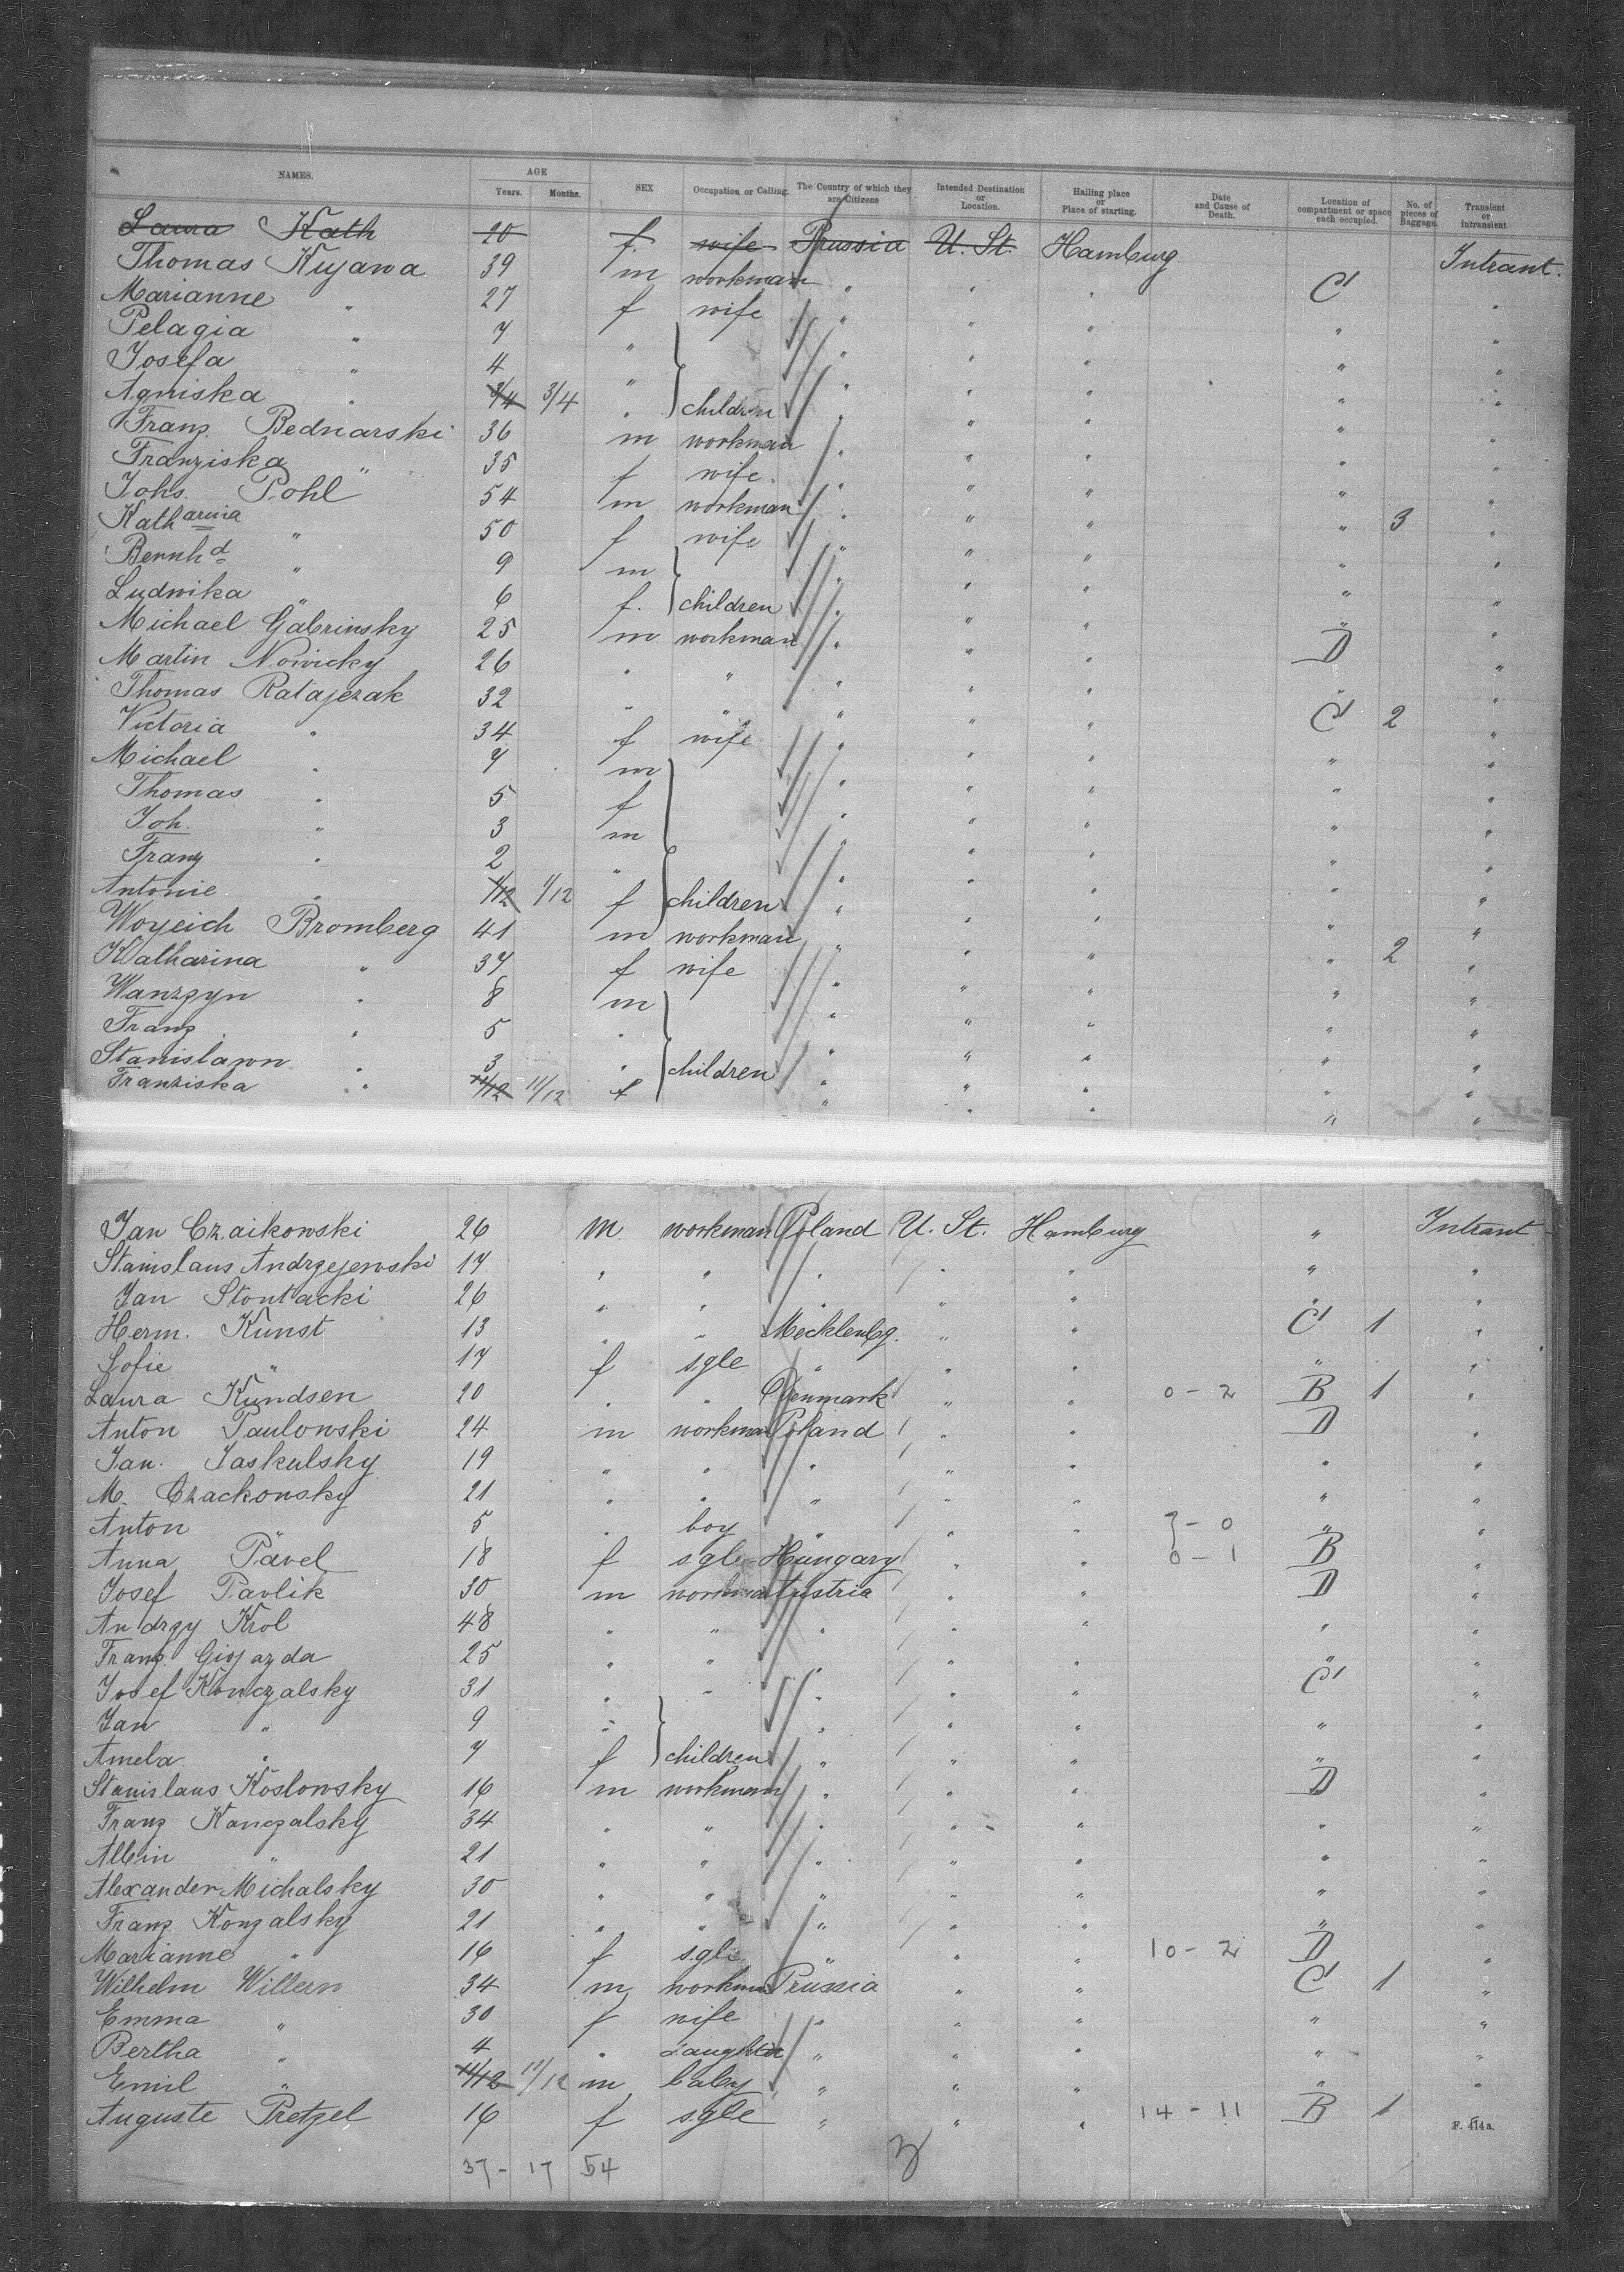 NAMES. AGE Years. Months. SEX Occupation or Calling. The Country of which they are Citizens Intended Destination or Location. Hailing place or Place of starting. Date and Cause of Death. Location of compartment or space each occupied. No. of pieces of Baggage. Transient or Intransient
Laura Kath 20 f. wife Prussia U. St. Hamburg Intrant.
Thomas Kujawa 39 m workman " " " C "
Marianne " 27 f wife " " " " "
Pelagia " 7 " " " " " "
Josefa " 4 " " " " " "
Agniska " 3/4 3/4 " children " " " " "
Franz Bednarski 36 m workman " " " " "
Franziska " 35 f wife. " " " " "
Johs. Pohl 54 m workman " " " " 3 "
Katharina " 50 f wife " " " " "
Bernhd " 9 m " " " " "
Ludwika " 6 f. children " " " " "
Michael Gabrinsky 25 m workman " " " D "
Martin Nowicky 26 " " " " " " "
Thomas Ratajczak 32 " " " " " C 2 "
Victoria " 34 f wife " " " " "
Michael " 7 m " " " " "
Thomas " 5 f " " " " "
Joh. " 3 m " " " " "
Franz " 2 " " " " " "
Antonie " 1/12 1/12 f children " " " " "
Woyeich Bromberg 41 m workman " " " " 2 "
Katharina " 37 f wife " " " " "
Wanzgyn " 8 m " " " " "
Franz " 5 " " " " " "
Stanislawn " 3 " children " " " " "
Franziska " 11/12 11/12 f " " " " "
Jan Czaikowski 26 m. workman Poland U. St. Hamburg " Intrant
Stanislaus Andrzejewski 17 " " " " " " "
Jan Stontacki 26 " " " " " " "
Herm. Kunst 13 " " Mecklenbg. " " C 1 "
Sofie " 17 f sgle " " " " "
Laura Kundsen 20 " " Denmark " " 0 - 2 B 1 "
Anton Paulowski 24 m workman Poland " " D "
Jan. Jaskulsky 19 " " " " " " "
M. Czackowsky 21 " " " " " " "
Anton " 5 " boy " " " 7 - 0 " "
Anna Pavel 18 f sgle Hungary " " 0 - 1 B "
Josef Pavlik 30 m workman Austria " " D "
Andrzy Krol 48 " " " " " " "
Franz. Giojazda 25 " " " " " " "
Josef Konczalsky 31 " " " " " C "
Jan " 9 " " " " " "
Amela " 7 f children " " " " "
Stanislaus Koslowsky 16 m workman " " " D "
Franz Kanczalsky 34 " " " " " " "
Albin " 21 " " " " " " "
Alexander Michalsky 30 " " " " " " "
Franz. Konzalsky 21 " " " " " " "
Marianne " 16 f sgle " " " 10 - 2 D "
Wilhelm Willern 34 m workman Prussia " " C 1 "
Emma " 30 f wife " " " " "
Bertha " 4 " daughter " " " " "
Emil " 11/12 11/12 m baby " " " " "
Auguste Pretzel 16 f sgle " " " 14 - 11 B 1
F. 414a.
37 - 17 54 3